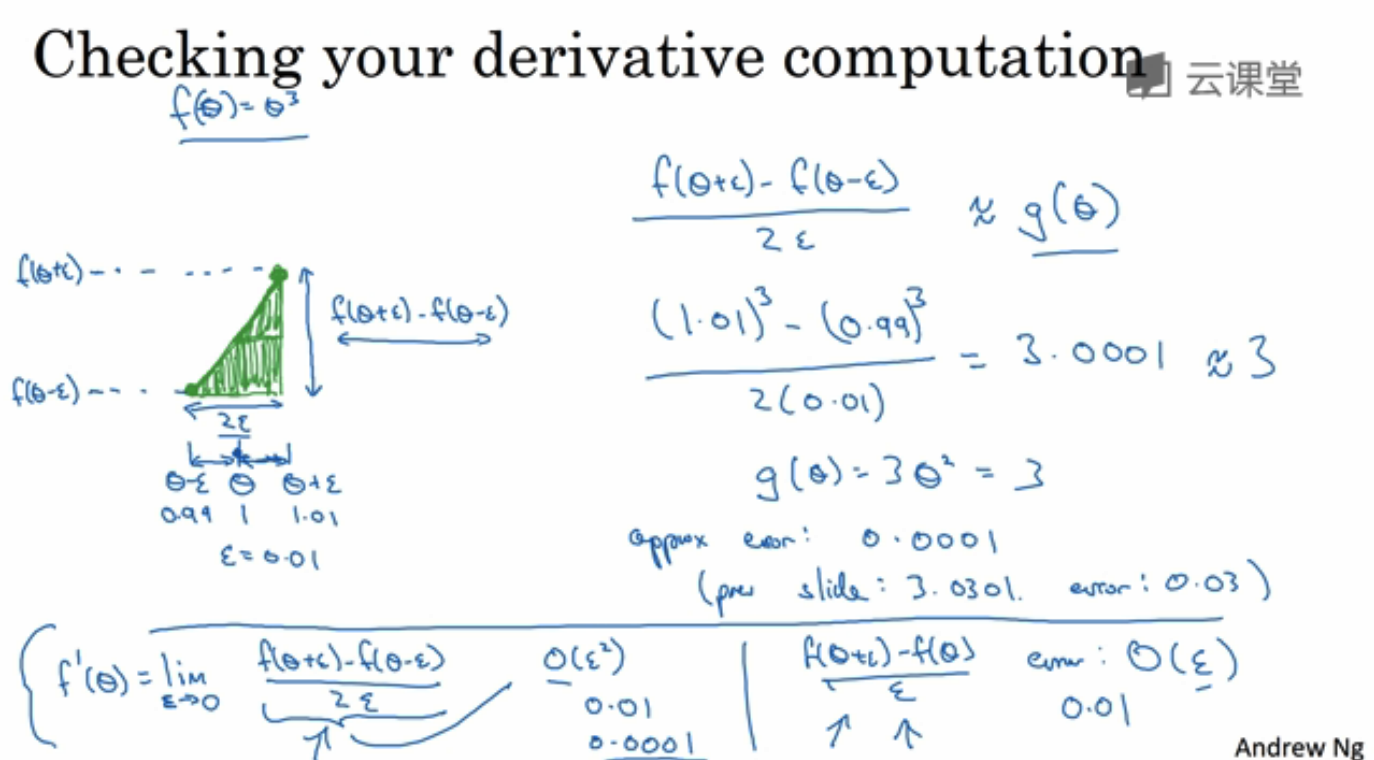 Checking your derivative computation
云课堂
f(θ) = θ³
f(θ+ε) - f(θ-ε)
2ε
≈ g(θ)
f(θ+ε)
f(θ+ε) - f(θ-ε)
f(θ-ε)
2ε
θ-ε θ θ+ε
0.99 1 1.01
ε = 0.01
(1.01)³ - (0.99)³
2(0.01)
= 3.0001 ≈ 3
g(θ) = 3θ² = 3
approx error: 0.0001
(prev slide: 3.0301. error: 0.03)
f'(θ) = lim
ε→0
f(θ+ε) - f(θ-ε)
2ε
O(ε²)
0.01
0.0001
f(θ+ε) - f(θ)
ε
error: O(ε)
0.01
Andrew Ng